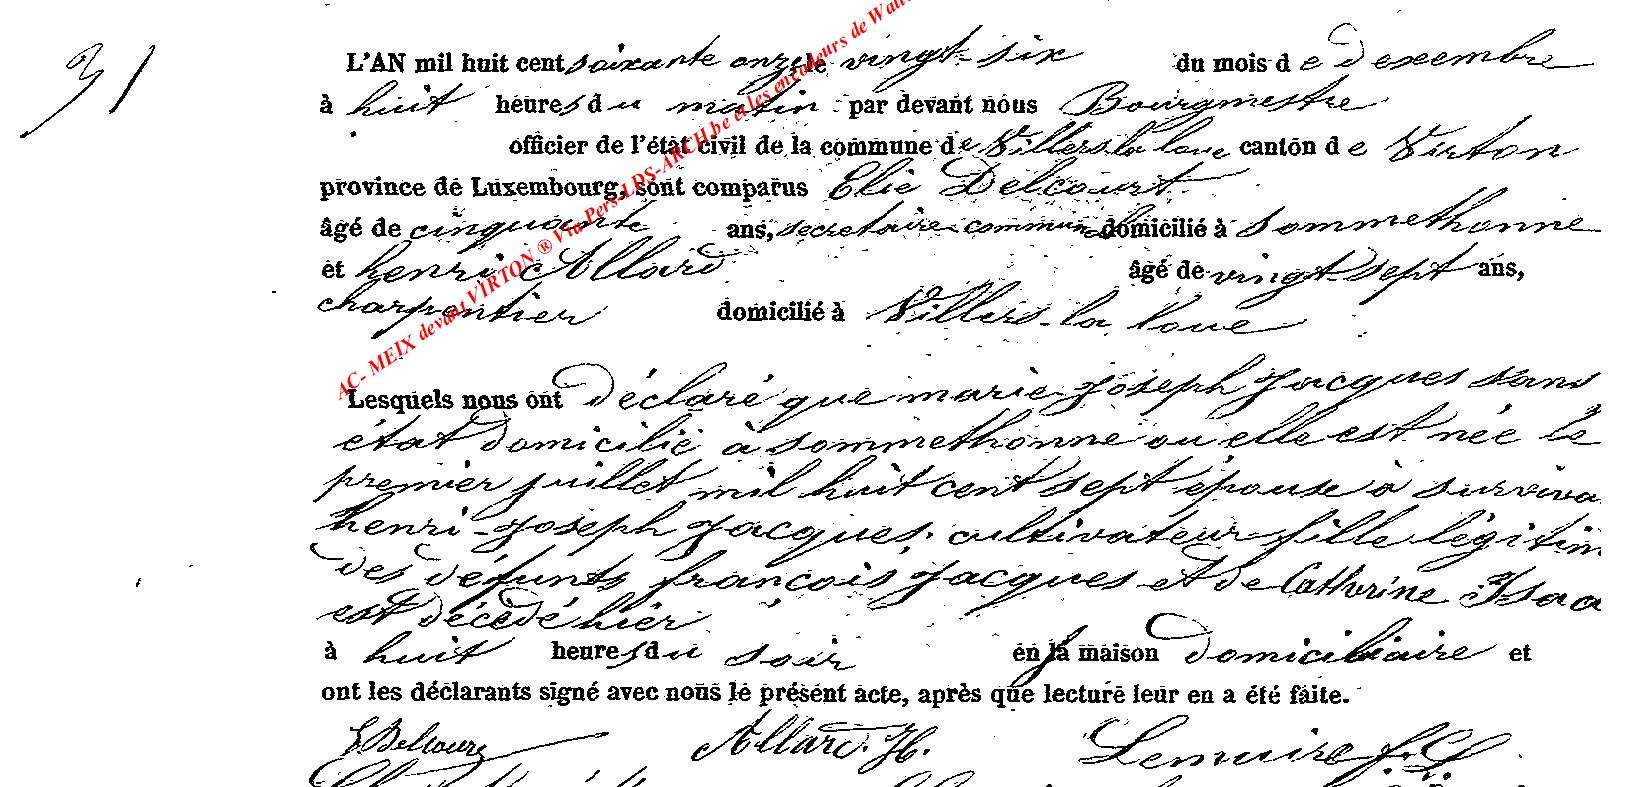 31
L'AN mil huit cent soixante onze le vingt-six du mois de Decembre
à huit heures du matin par devant nous Bourgmestre
officier de l'état civil de la commune de Villers-la loue canton de Virton
province de Luxembourg, sont comparus Elie Delcourt
âgé de cinquante ans, secretaire communal domicilié à Sommethonne
et henri Allard âgé de vingt-sept ans,
charpentier domicilié à Villers-la loue
Lesquels nous ont déclaré que marie-Joseph Jacques sans
état domicilié à Sommethonne ou elle est née le
premier juillet mil huit cent sept épouse à surviva
henri-Joseph Jacques, cultivateur fille légitim
des défunts françois Jacques et de Catherine Isaa
est décédé hier
à huit heures du soir en sa maison domiciliaire et
ont les déclarants signé avec nous le présent acte, après que lecture leur en a été faite.
E Delcourt Allard. H. Lemuire J. L
AC- MEIX devant VIRTON ® Via Pers LDS-ARCH be et les encodeurs de Wall